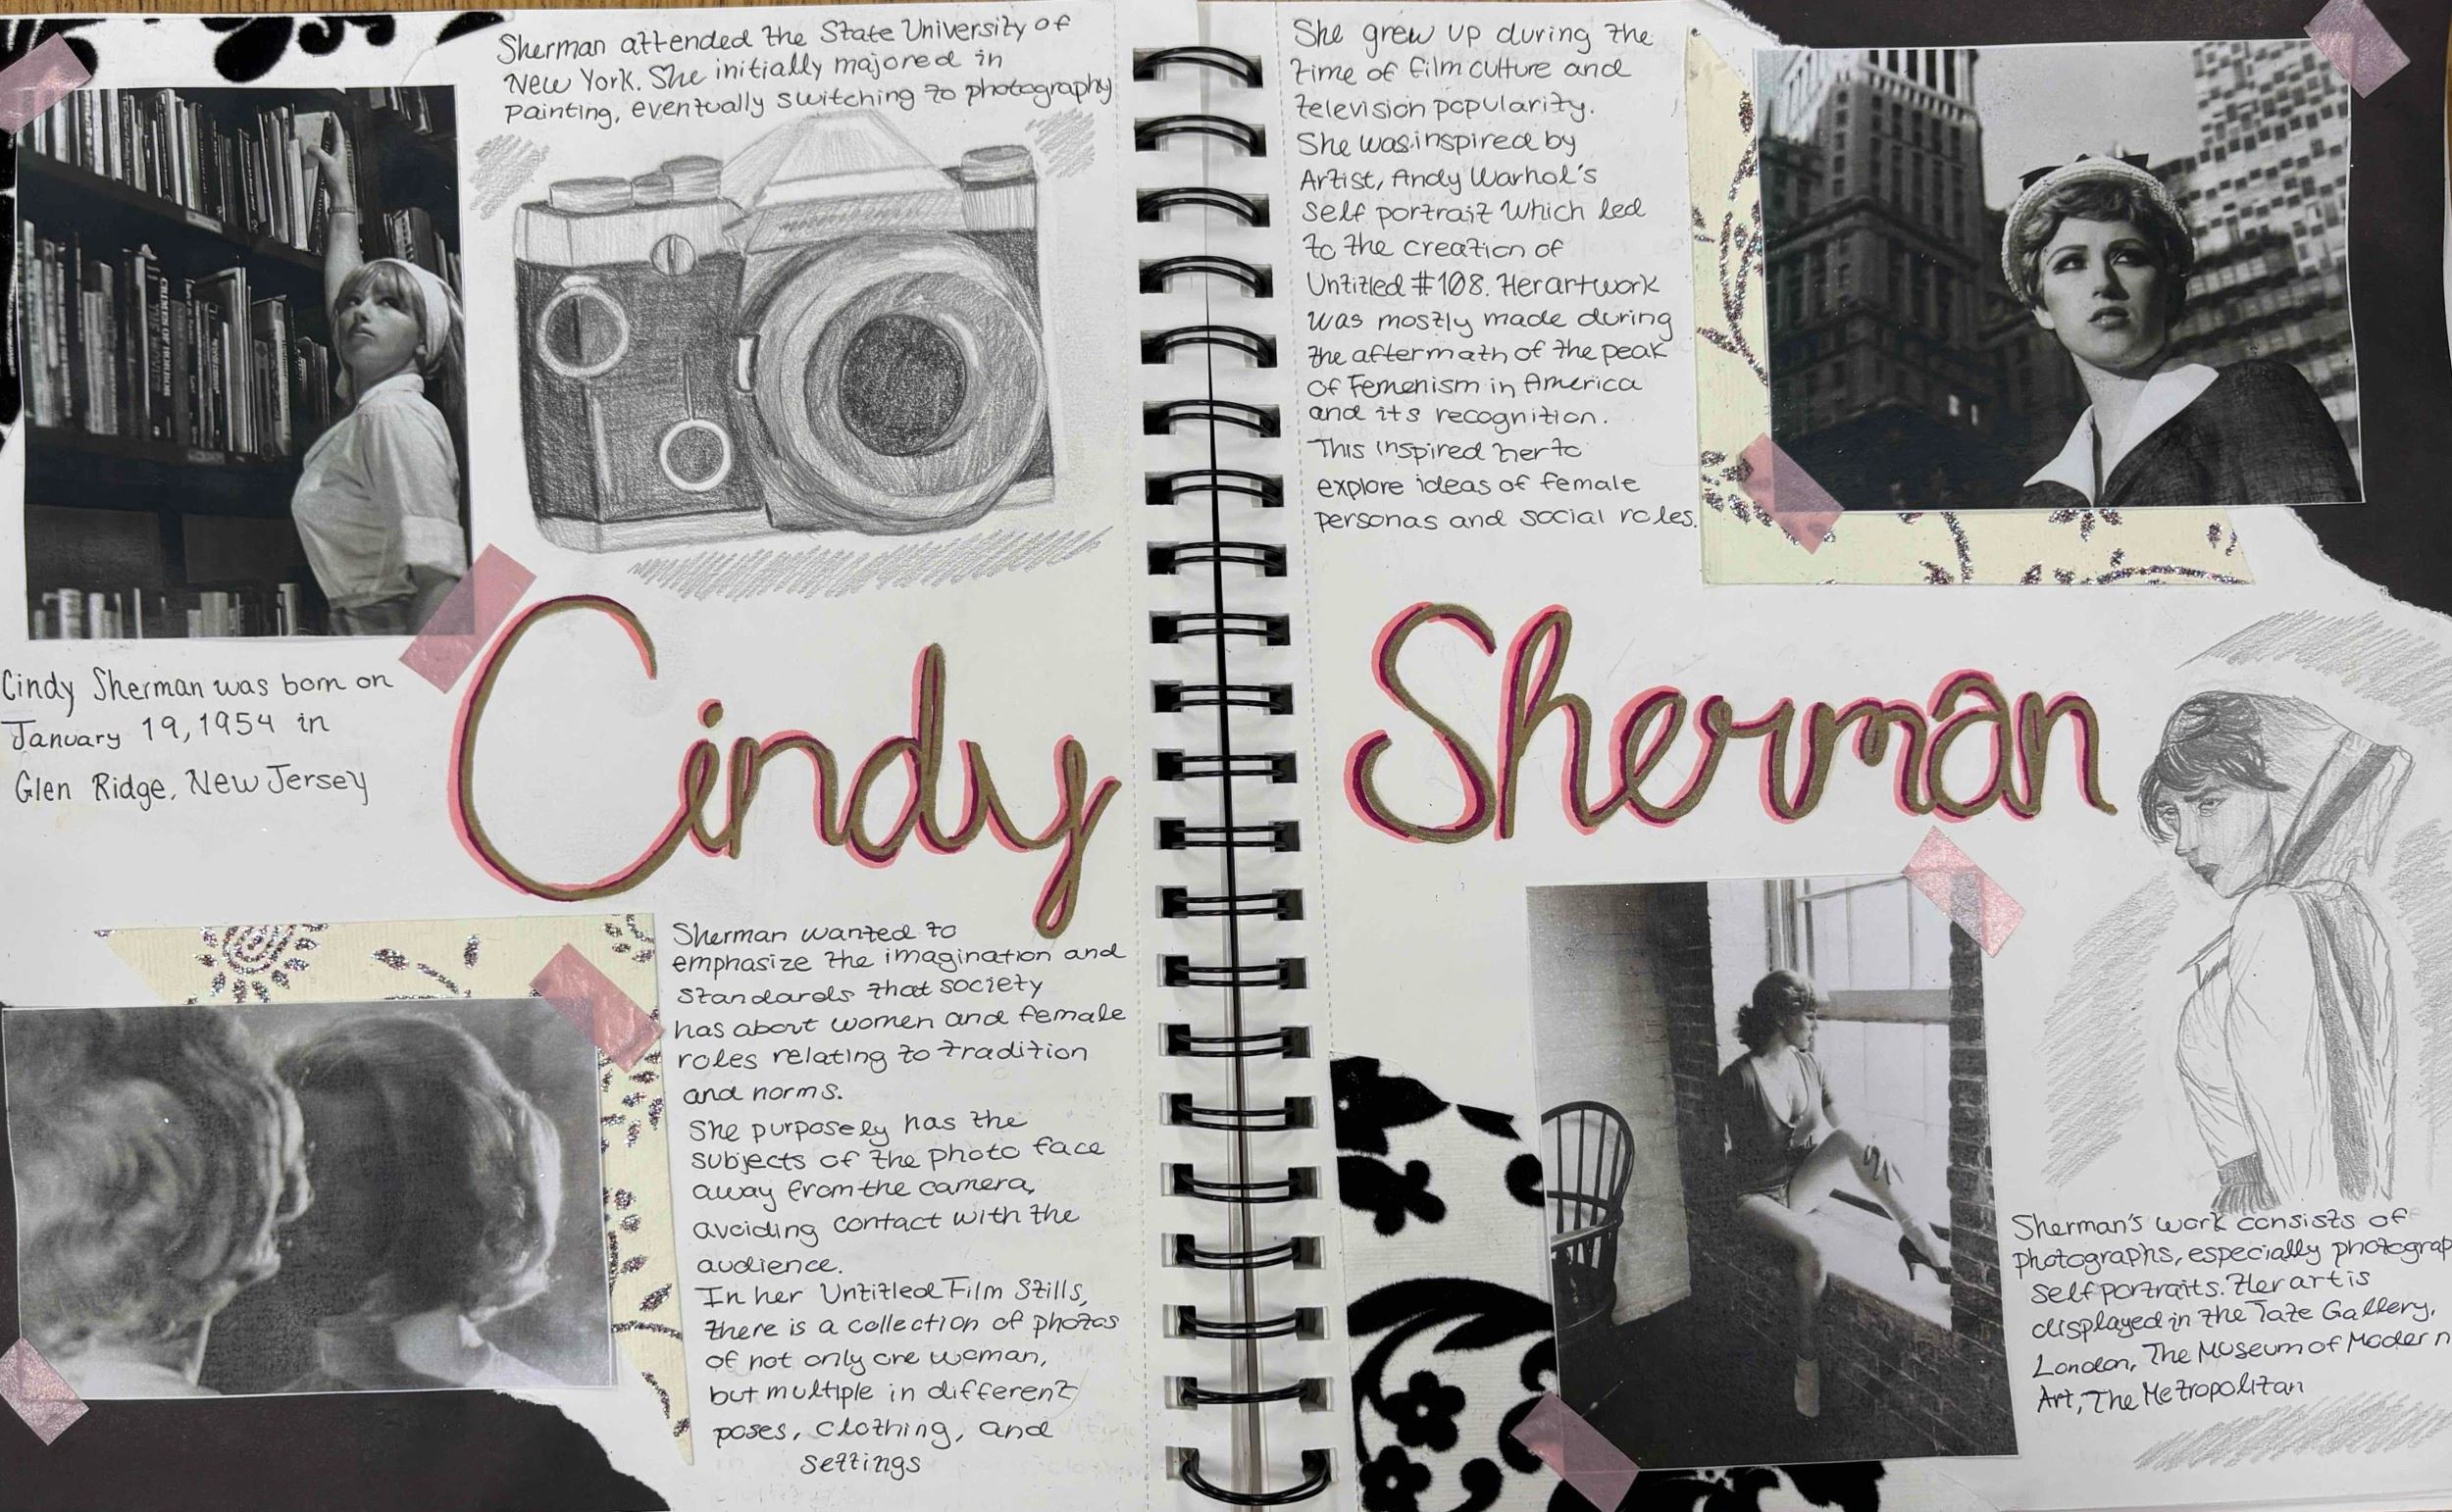 Sherman attended the State University of
New York. She initially majored in
Painting, eventually switching to photography
Cindy Sherman was born on
January 19, 1954 in
Glen Ridge, New Jersey
Cindy
Sherman wanted to
emphasize the imagination and
standards that society
has about women and female
roles relating to tradition
and norms.
She purposely has the
subjects of the photo face
away from the camera,
avoiding contact with the
audience.
In her Untitled Film Stills,
there is a collection of photos
of not only one woman,
but multiple in different
poses, clothing, and
settings
She grew up during the
time of film culture and
television popularity.
She was inspired by
Artist, Andy Warhol's
self portrait which led
to the creation of
Untitled #108. Her artwork
was mostly made during
the aftermath of the peak
of Femenism in America
and its recognition.
This inspired her to
explore ideas of female
personas and social roles.
Sherman
Sherman's work consists of
photographs, especially photograp
self portraits. Her art is
displayed in the Tate Gallery,
London, The Museum of Modern
Art, The Metropolitan